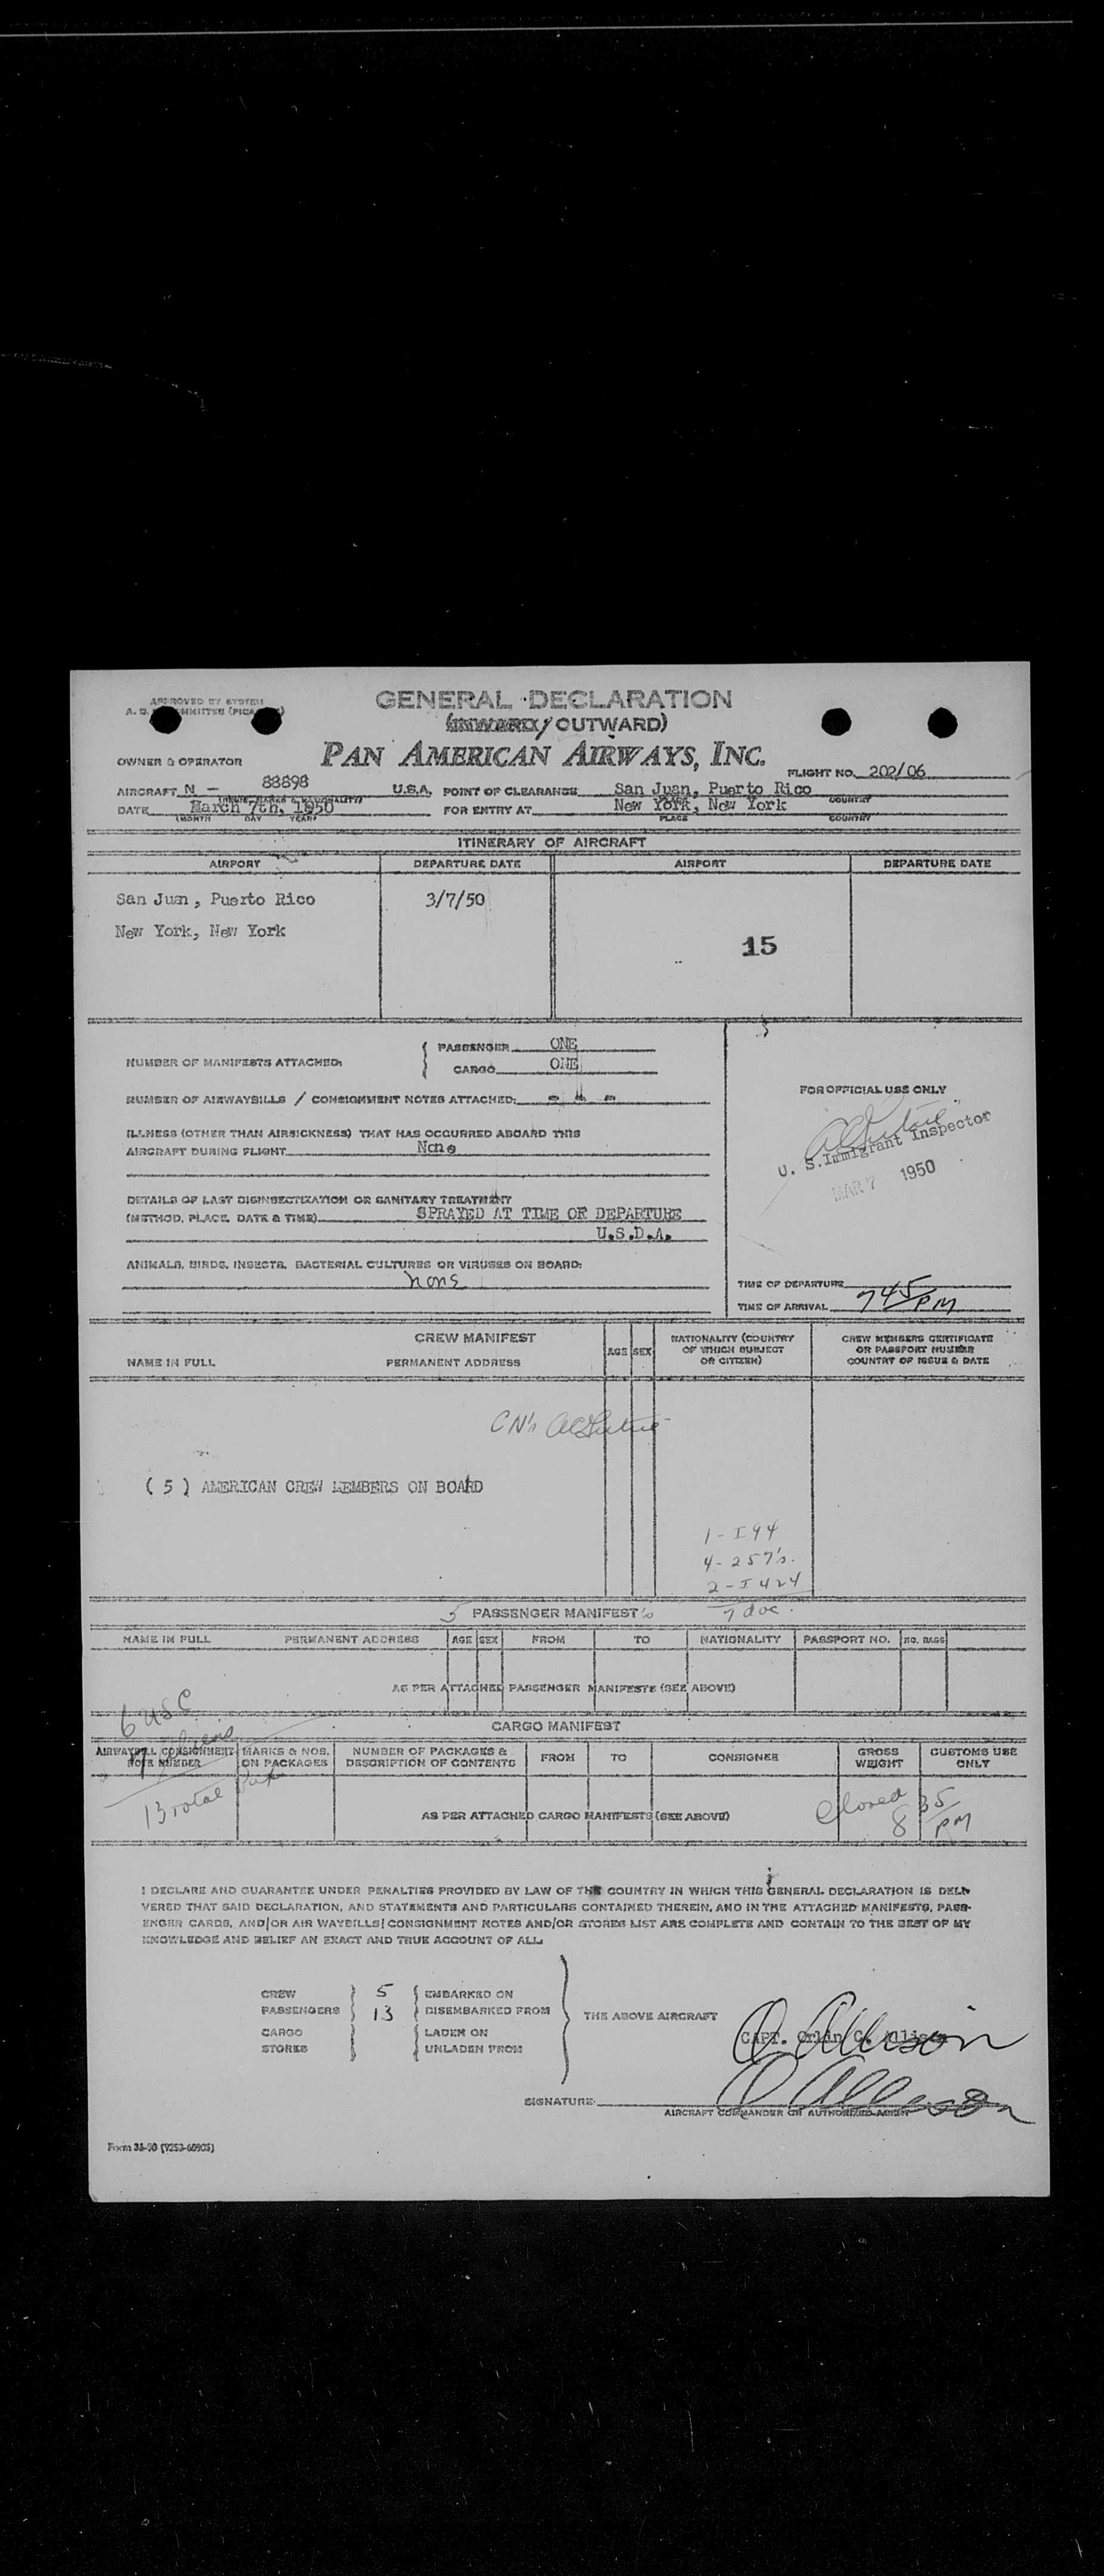 APPROVED BY SYSTEM
GENERAL DECLARATION
(INWARD / OUTWARD)
PAN AMERICAN AIRWAYS, INC.
OWNER & OPERATOR
FLIGHT NO. 202/06
AIRCRAFT N - 88898 U.S.A. POINT OF CLEARANCE San Juan, Puerto Rico
COUNTRY
DATE March 7th, 1950 FOR ENTRY AT New York, New York
(MONTH DAY YEAR) PLACE COUNTRY
ITINERARY OF AIRCRAFT
AIRPORT DEPARTURE DATE AIRPORT DEPARTURE DATE
San Juan, Puerto Rico 3/7/50
New York, New York
15
NUMBER OF MANIFESTS ATTACHED:
PASSENGER ONE
CARGO ONE
NUMBER OF AIRWAYBILLS / CONSIGNMENT NOTES ATTACHED:
ILLNESS (OTHER THAN AIRSICKNESS) THAT HAS OCCURRED ABOARD THIS
AIRCRAFT DURING FLIGHT None
DETAILS OF LAST DISINSECTIZATION OR SANITARY TREATMENT
(METHOD, PLACE, DATE & TIME) SPRAYED AT TIME OF DEPARTURE
U.S.D.A.
ANIMALS, BIRDS, INSECTS, BACTERIAL CULTURES OR VIRUSES ON BOARD:
none
FOR OFFICIAL USE ONLY
U. S. Immigrant Inspector
MAR 7 1950
TIME OF DEPARTURE
TIME OF ARRIVAL 745 PM
CREW MANIFEST
NAME IN FULL PERMANENT ADDRESS AGE SEX NATIONALITY (COUNTRY OF WHICH SUBJECT OR CITIZEN) CREW MEMBERS CERTIFICATE OR PASSPORT NUMBER COUNTRY OF ISSUE & DATE
( 5 ) AMERICAN CREW MEMBERS ON BOARD
1 - I 94
4 - 257's.
2 - I 424
7 doc.
5 PASSENGER MANIFEST
NAME IN FULL PERMANENT ADDRESS AGE SEX FROM TO NATIONALITY PASSPORT NO. NO. BAGS
AS PER ATTACHED PASSENGER MANIFESTS (SEE ABOVE)
6 USC
7 aliens
13 total Pax
CARGO MANIFEST
AIRWAYBILL CONSIGNMENT NOTE NUMBER MARKS & NOS. ON PACKAGES NUMBER OF PACKAGES & DESCRIPTION OF CONTENTS FROM TO CONSIGNEE GROSS WEIGHT CUSTOMS USE ONLY
AS PER ATTACHED CARGO MANIFESTS (SEE ABOVE)
Closed 8 35 PM
I DECLARE AND GUARANTEE UNDER PENALTIES PROVIDED BY LAW OF THE COUNTRY IN WHICH THIS GENERAL DECLARATION IS DELI-
VERED THAT SAID DECLARATION, AND STATEMENTS AND PARTICULARS CONTAINED THEREIN, AND IN THE ATTACHED MANIFESTS, PASS-
ENGER CARDS, AND/OR AIR WAYBILLS/CONSIGNMENT NOTES AND/OR STORES LIST ARE COMPLETE AND CONTAIN TO THE BEST OF MY
KNOWLEDGE AND BELIEF AN EXACT AND TRUE ACCOUNT OF ALL
CREW 5 EMBARKED ON
PASSENGERS 13 DISEMBARKED FROM
CARGO LADEN ON
STORES UNLADEN FROM
THE ABOVE AIRCRAFT
CAPT. Orlin C. Allison
O Allison
SIGNATURE: O Allison
AIRCRAFT COMMANDER OR AUTHORIZED AGENT